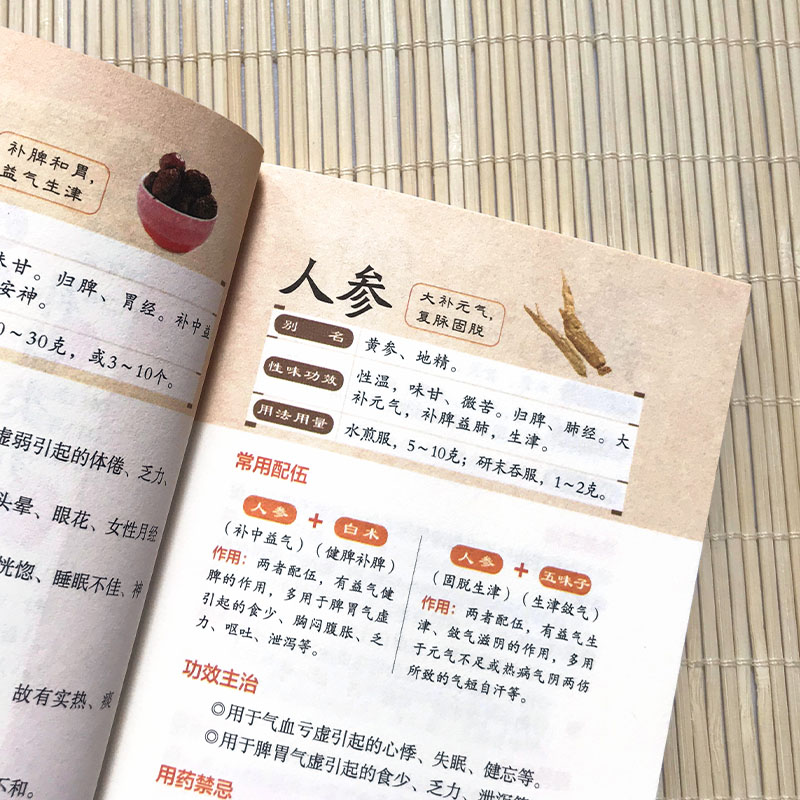 补脾和胃，
益气生津
味甘。归脾、胃经。补中益
安神。
0～30克，或3～10个。
虚弱引起的体倦、乏力、
头晕、眼花、女性月经
恍惚、睡眠不佳、神
故有实热、痰
不和。
人参
大补元气，
复脉固脱
别名
黄参、地精。
性味功效
性温，味甘、微苦。归脾、肺经。大
补元气，补脾益肺，生津。
用法用量
水煎服，5～10克；研末吞服，1～2克。
常用配伍
人参 + 白术
（补中益气）（健脾补脾）
作用：两者配伍，有益气健
脾的作用，多用于脾胃气虚
引起的食少、胸闷腹胀、乏
力、呕吐、泄泻等。
人参 + 五味子
（固脱生津）（生津敛气）
作用：两者配伍，有益气生
津、敛气滋阴的作用，多用
于元气不足或热病气阴两伤
所致的气短自汗等。
功效主治
◎用于气血亏虚引起的心悸、失眠、健忘等。
◎用于脾胃气虚引起的食少、乏力、泄泻等
用药禁忌